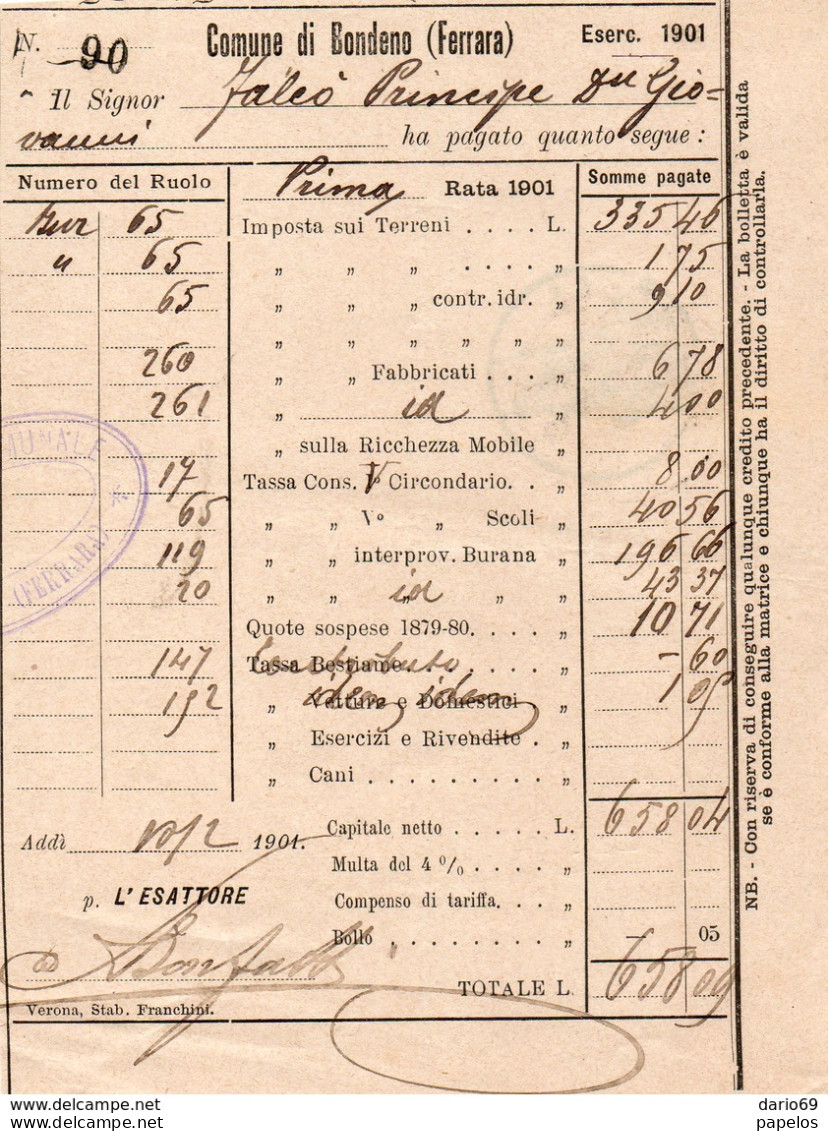 N. 90 Comune di Bondeno (Ferrara) Eserc. 1901
Il Signor Falcò Principe Don Gio-
vanni ha pagato quanto segue:
Numero del Ruolo Prima Rata 1901 Somme pagate
Rur 65 Imposta sui Terreni . . . . L. 335 46
" 65 „ „ „ . . . . „ 1 75
65 „ „ contr. idr. „ 9 10
„ „ „ „ „ „
260 „ „ Fabbricati . . . „ 6 78
261 „ id „ 4 00
„ sulla Ricchezza Mobile „
17 Tassa Cons. Vº Circondario. . „ 8 00
65 „ „ Vº „ Scoli „ 40 56
119 „ „ interprov. Burana „ 196 66
20 „ „ id „ „ 43 37
Quote sospese 1879-80. . . . „ 10 71
147 Tassa Bestiame „ – 60
152 „ Vetture e Domestici idem „ 1 05
„ Esercizi e Rivendite . „
„ Cani . . . . . . . . . „
658 04
Addì 10/2 1901. Capitale netto . . . . . L.
Multa del 4 % . . . . „
p. L'ESATTORE Compenso di tariffa. . . „
Bollo . . . . . . . . „ — 05
TOTALE L. 658 09
Verona, Stab. Franchini.
NB. - Con riserva di conseguire qualunque credito precedente. - La bolletta è valida
se è conforme alla matrice e chiunque ha il diritto di controllarla.
MUNALE
(FERRARA)
dario69
papelos